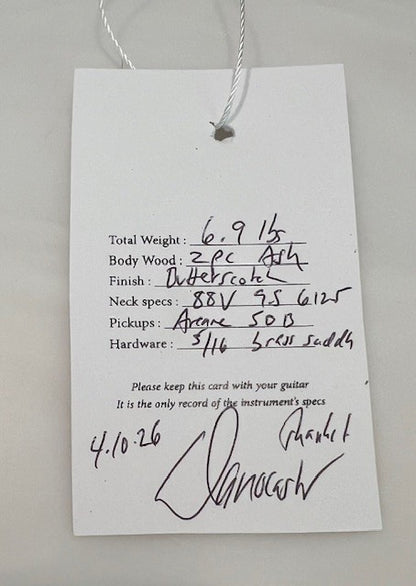 Total Weight : 6.9 lbs
Body Wood : 2pc Ash
Finish : Butterscotch
Neck specs : .88V 9.5 6125
Pickups : Arcane 50B
Hardware : 5/16 brass saddle
Please keep this card with your guitar
It is the only record of the instrument's specs
4.10.26
Thanks!
Danocaster